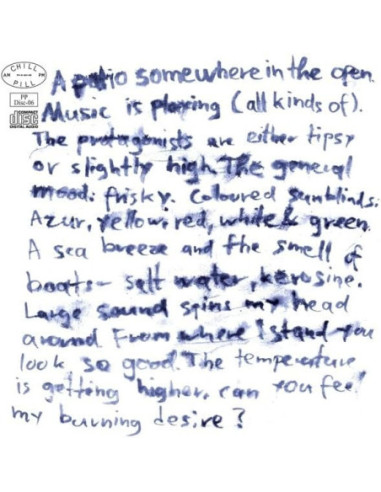 CHILL
AM PM
PILL
PP
Disc-06
COMPACT
disc
DIGITAL AUDIO
A patio somewhere in the open.
Music is playing (all kinds of).
The protagonists are either tipsy
or slightly high. The general
mood: frisky. Coloured sunblinds:
Azur, yellow, red, white & green.
A sea breeze and the smell of
boats - salt water, kerosine.
Large sound spins my head
around From where I stand you
look so good. The temperature
is getting higher, can you feel
my burning desire?